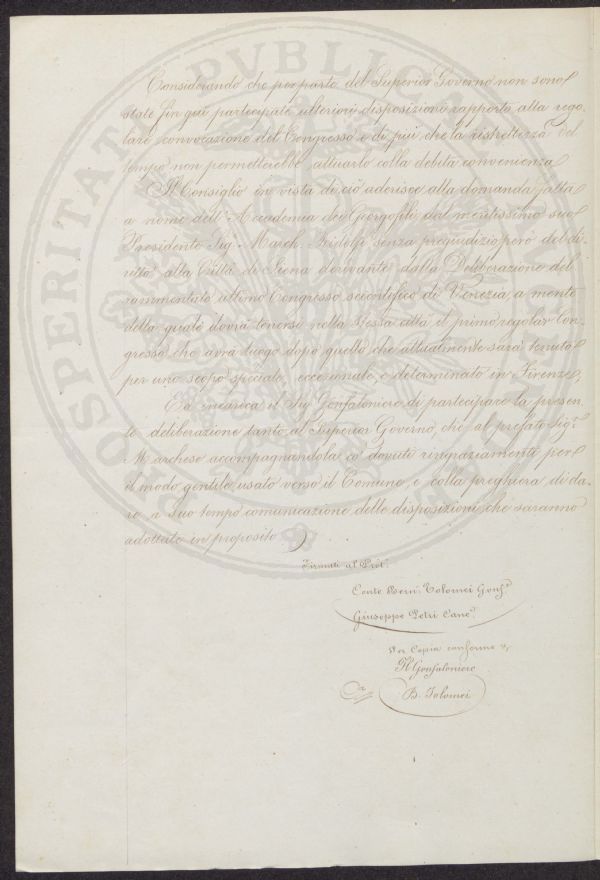 Considerando che per parte del Superior Governo non sono
state fin quì partecipate ulteriori disposizioni rapporto alla rego-
lare convocazione del Congresso e di più, che la ristrettezza del
tempo non permetterebbe attuarlo colla debita convenienza
Il Consiglio in vista di ciò aderisce alla domanda fatta
a nome dell'Accademia dei Georgofili dal meritissimo suo
Presidente Sig. March. Ridolfi senza pregiudizio però del di-
ritto alla Città di Siena derivante dalla Deliberazione del
rammentato ultimo Congresso scientifico di Venezia, a mente
della quale dovrà tenersi nella stessa città il primo regolar Con-
gresso che avrà luogo dopo quello che attualmente sarà tenuto
per uno scopo speciale, eccezionale, e determinato in Firenze,
Ed incarica il Sig. Gonfaloniere di partecipare la presen-
te deliberazione tanto al Superior Governo, che al prefato Sig.r
Marchese accompagnandola co' dovuti ringraziamenti per
il modo gentile usato verso il Comune, e colla preghiera di da-
re a suo tempo comunicazione delle disposizioni che saranno
adottate in proposito
Firmati al Prot.
Conte Bern. Tolomei Gonf.
Giuseppe Petri Canc.
Per Copia conforme
Il Gonfaloniere
B. Tolomei